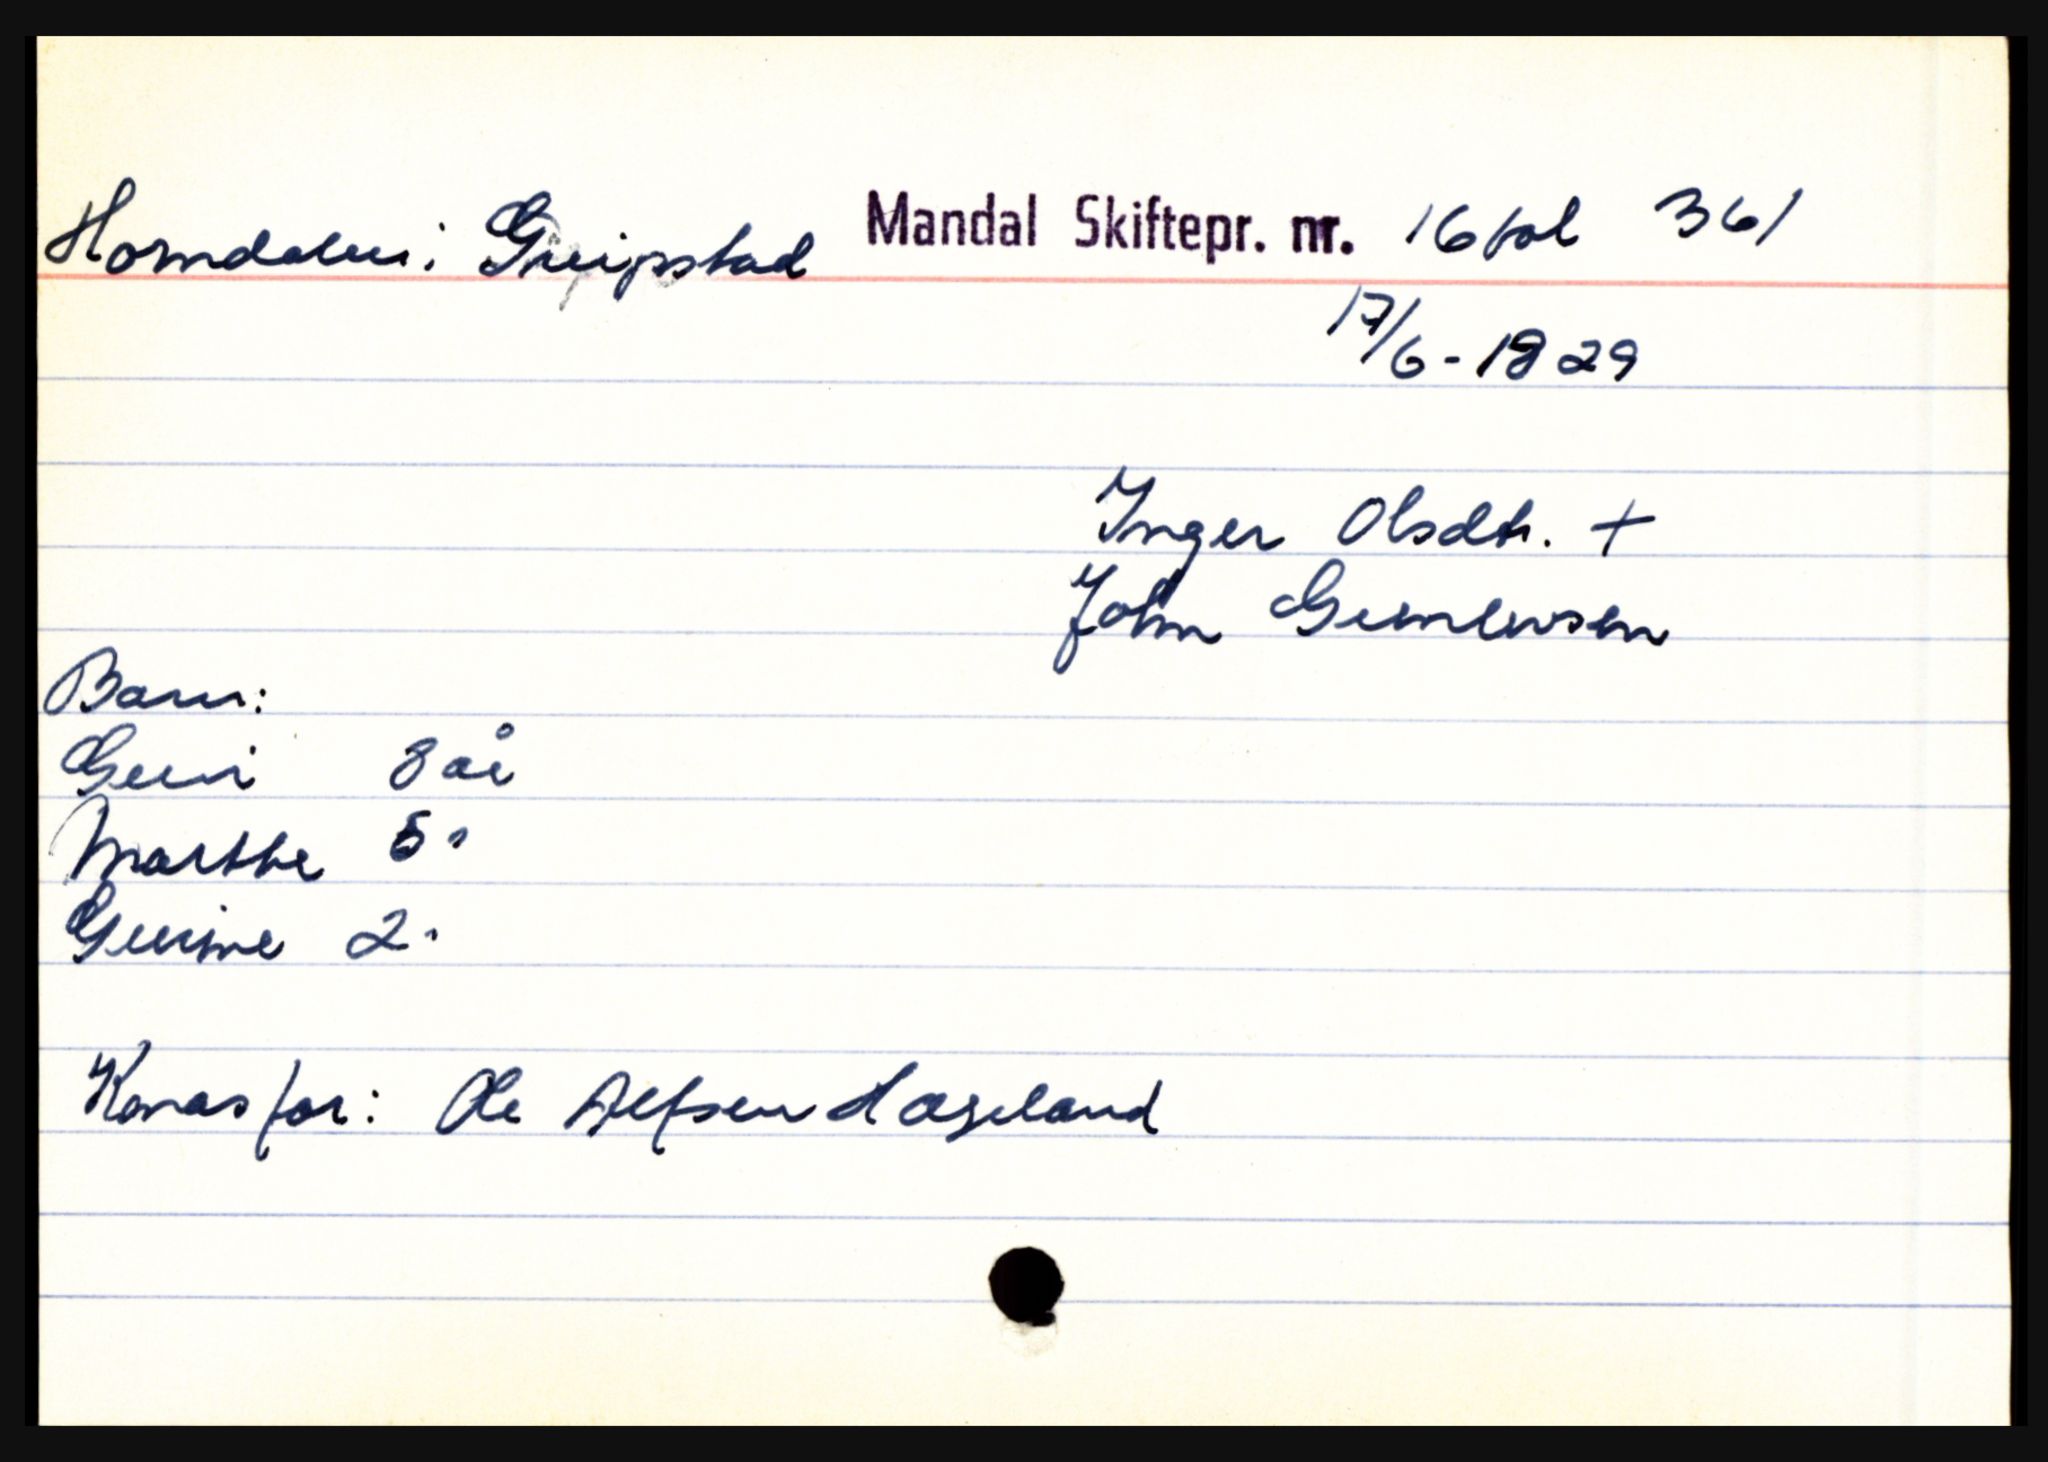 Homdalen i Greipstad Mandal Skiftepr. nr. 16 fol 361
17/6 - 1829
Inger Olsdtr. +
John Gunlevsen
Barn:
Guri 8 år
Marthe 5 "
Gurine 2 "
Konas far: Ole Alfsen Hægeland